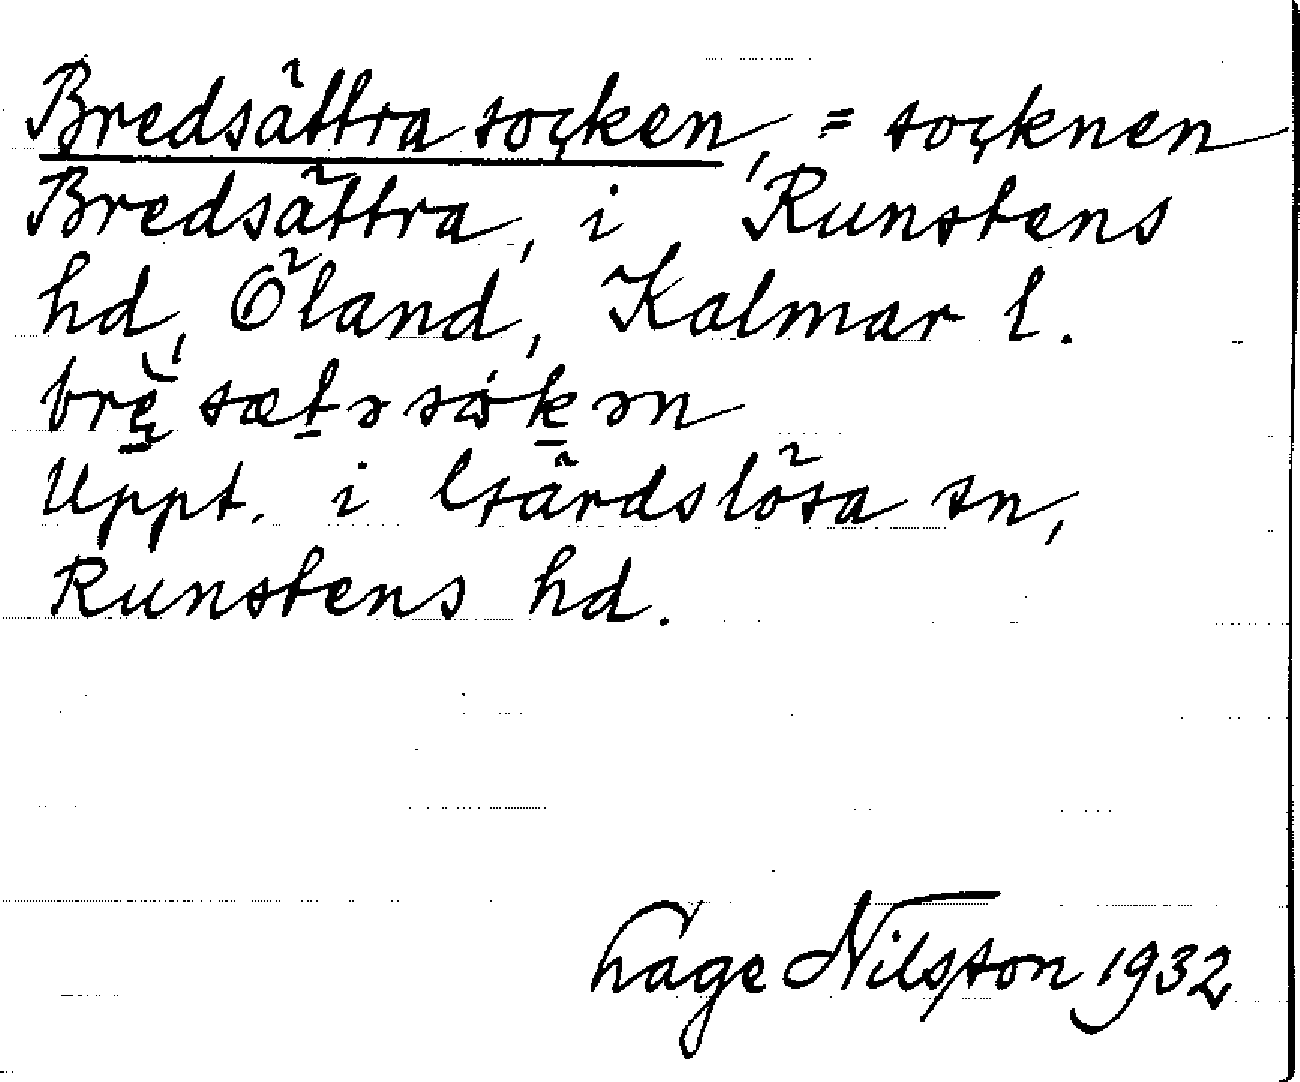 Bredsättra socken, = socknen
Bredsättra, i Runstens
hd, Öland, Kalmar l.
Uppt. i Gärdslösa sn,
Runstens hd.
Hage Nilsson 1932